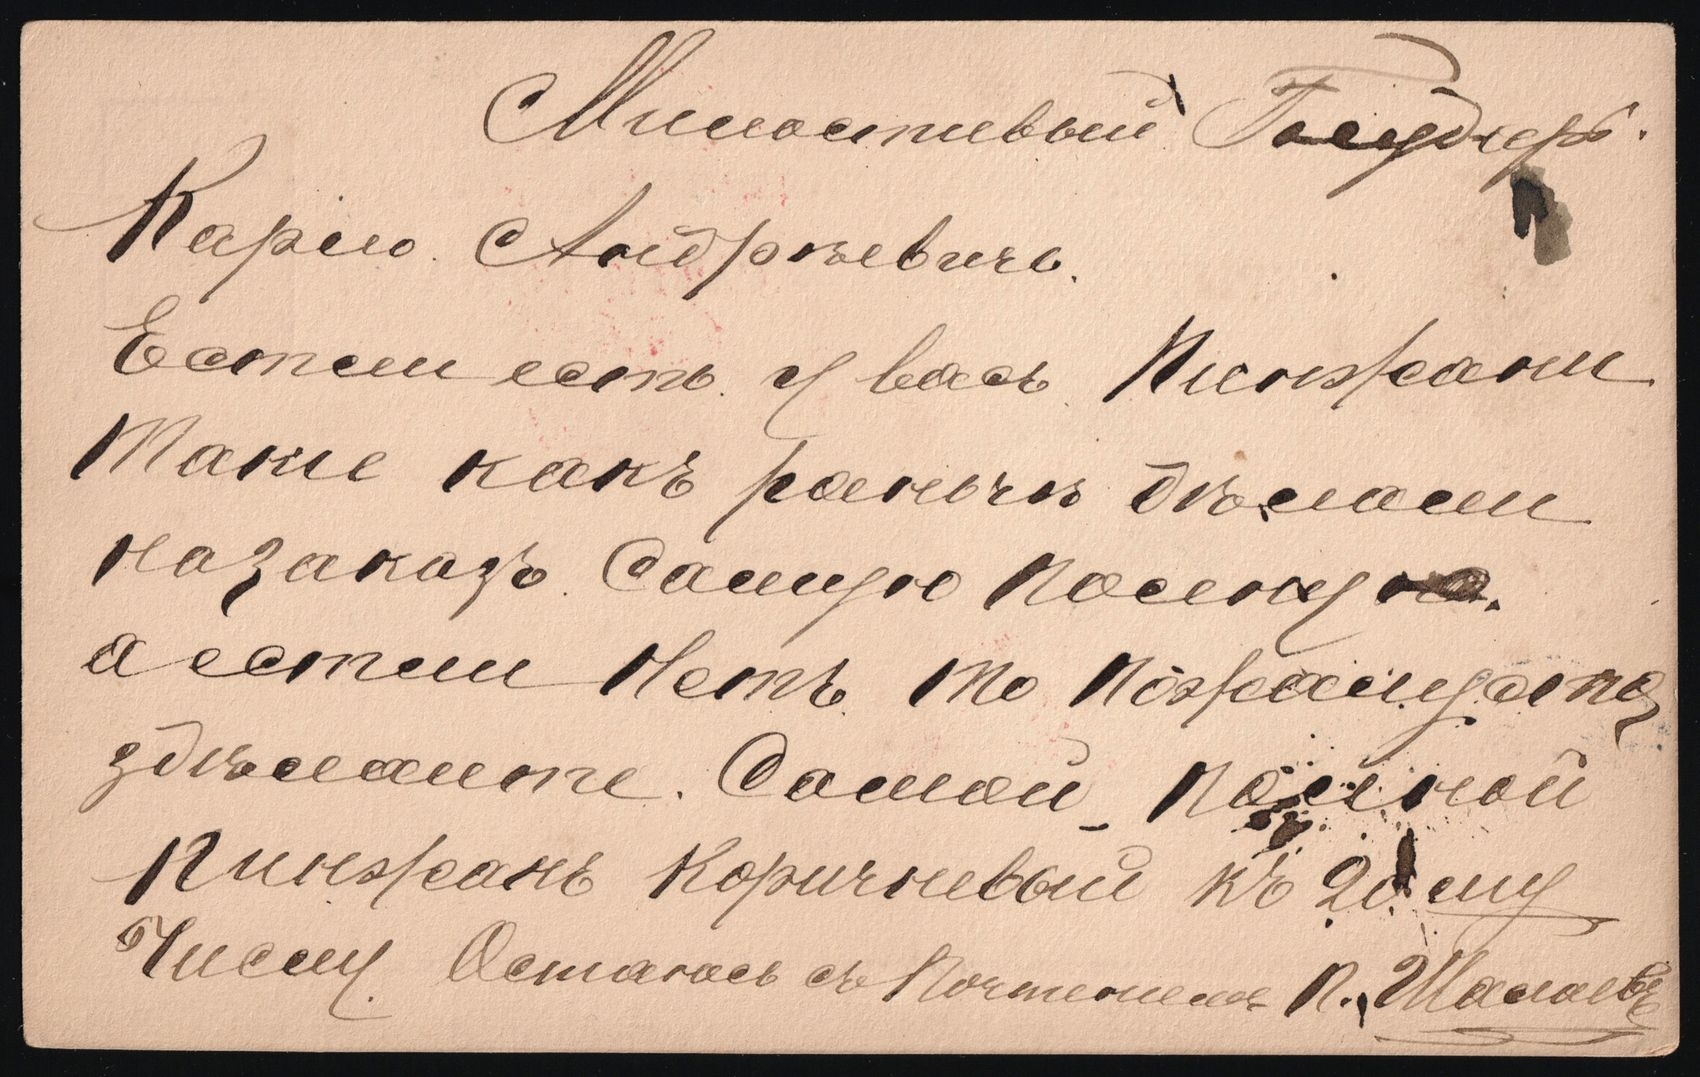 Милостивый Государь.
Карлъ Андрѣевичъ.
Естли есть у васъ Пинжаки
Такие какъ раньчи дѣлали
на заказъ Самую Полную.
а естли Нетъ то Пожалуста
здѣлайте. Самой Полной
Пинжакъ Коричневый къ 20 му
Числу. Остаюсь съ Почтениемъ П. Шалаевъ